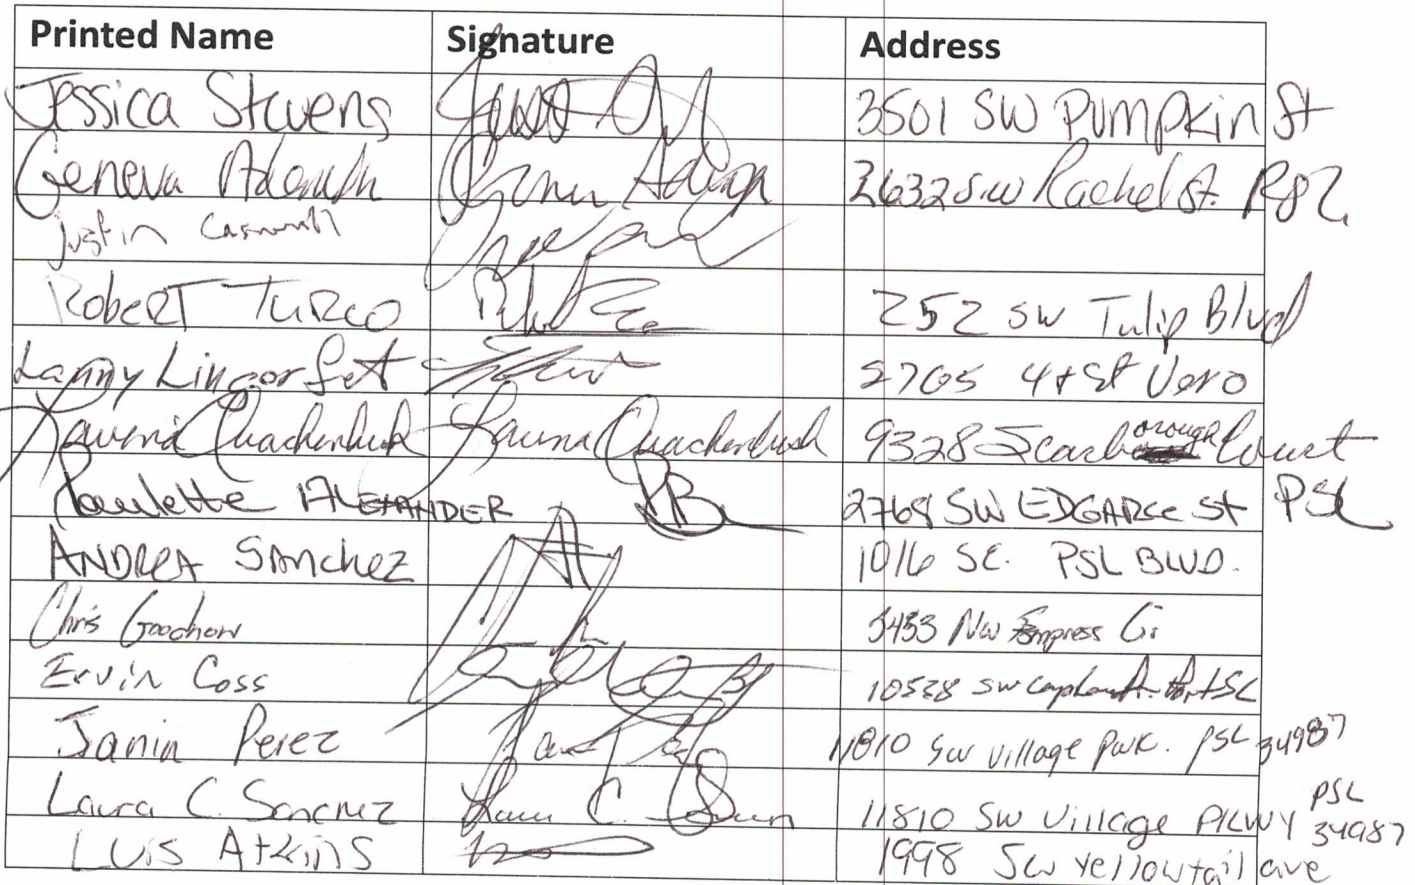 Printed Name Signature Address
Jessica Stevens 3501 SW Pumpkin St
Geneva 2632 SW Rachel St. PSL
Justin
Robert Turco 252 SW Tulip Blvd
Lanny Lingorfet 2765 4th St Vero
Quackenbush Quackenbush 9328 Scarborough Court
Paulette ALEXANDER 2768 SW EDGARCE St PSL
ANDREA Sanchez 1016 SE. PSL BLVD.
Chris 5433 NW Empress
Ervin Coss 10528 SW Port SL
Janin Perez 11810 SW Village Pwk. PSL 34987
Laura C. Sanchez Laura C. 11810 SW Village PKWY PSL 34987
Luis Atkins 1998 SW Yellowtail ave